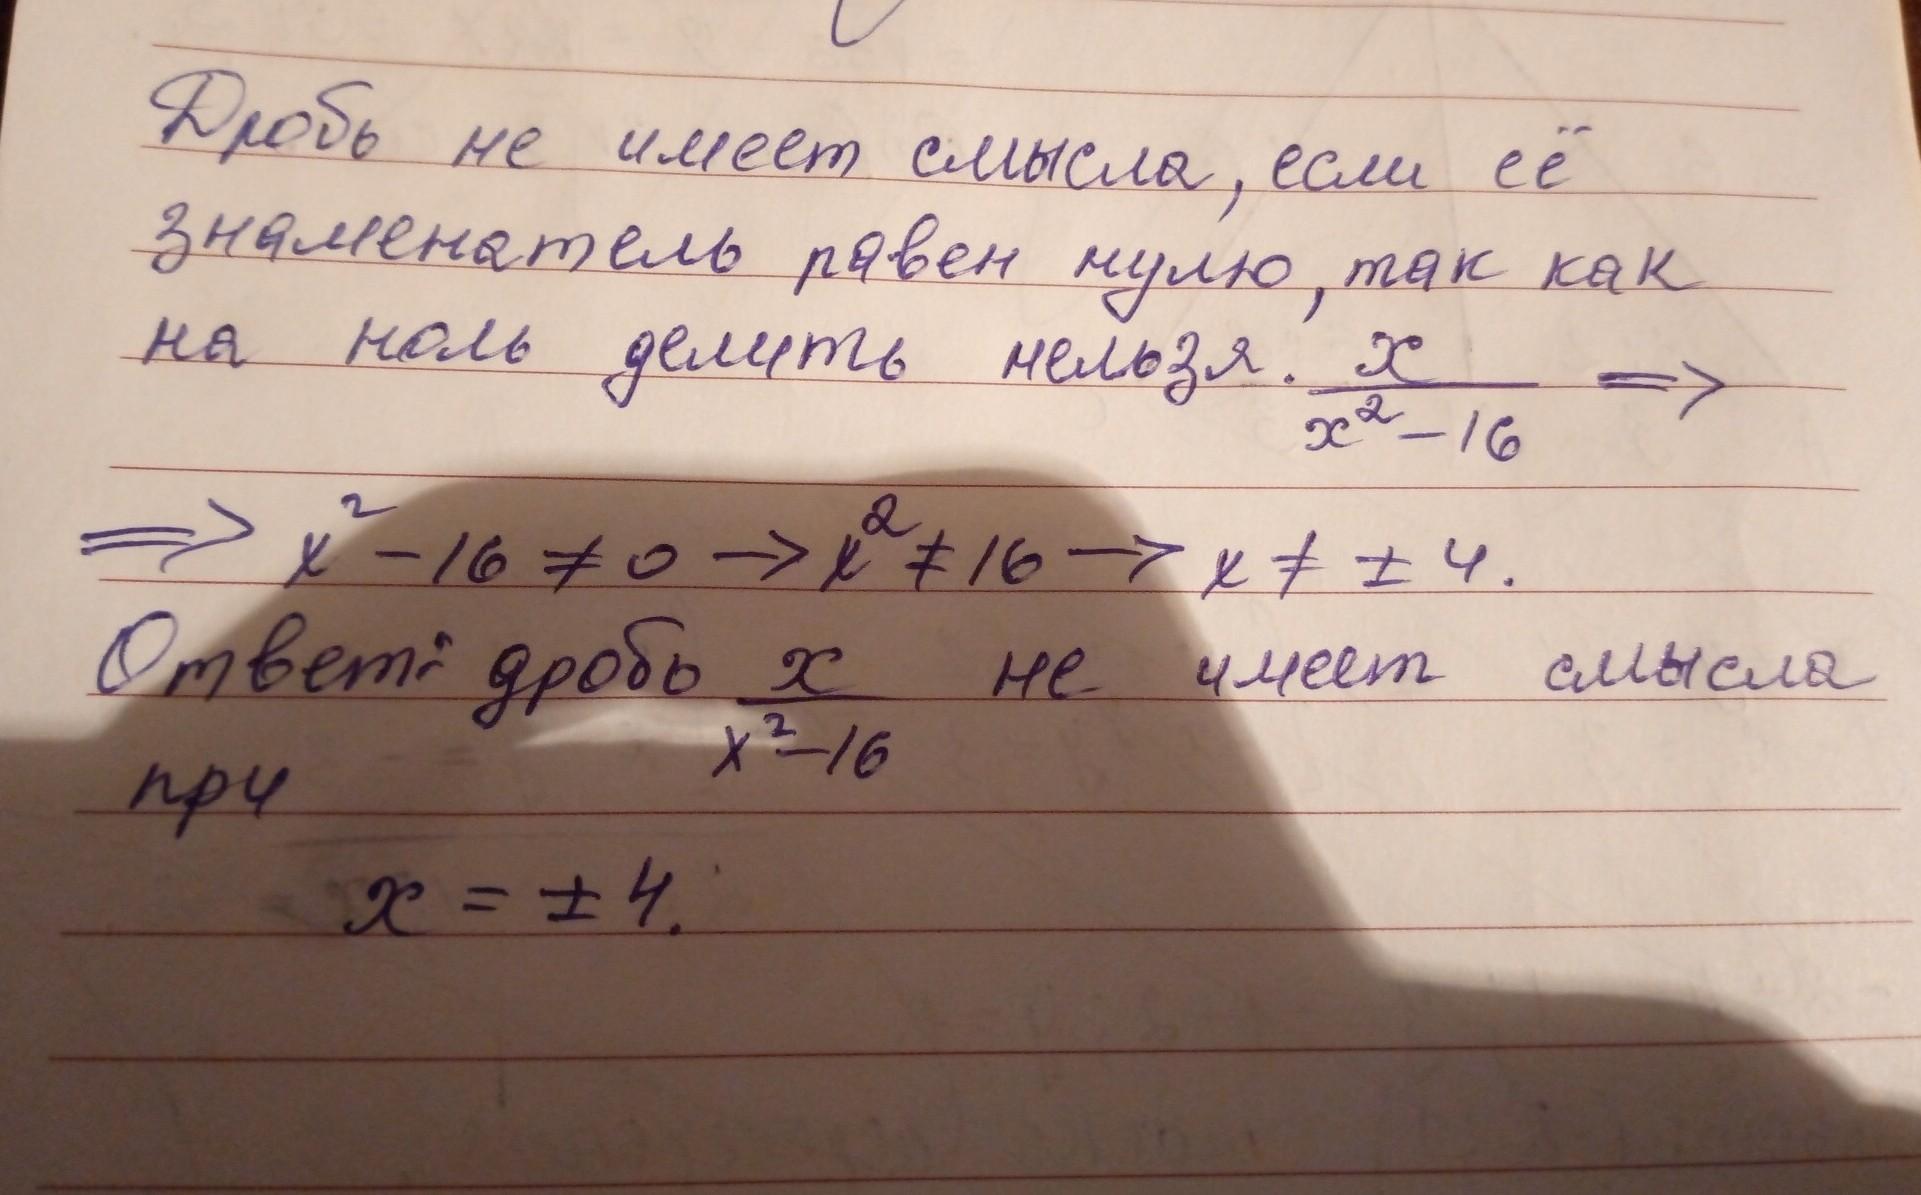 Дробь не имеет смысла, если её
знаменатель равен нулю, так как
на ноль делить нельзя. x/(x²-16) =>
=> x² - 16 ≠ 0 → x² ≠ 16 → x ≠ ± 4.
Ответ: дробь x/(x²-16) не имеет смысла
при
x = ± 4.